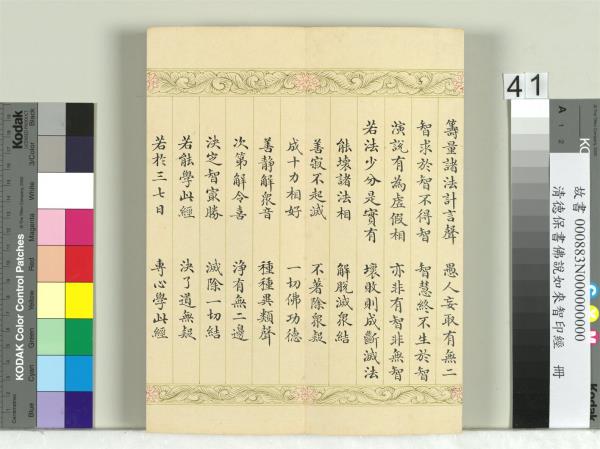 籌量諸法計言聲 愚人妄取有無二
智求於智不得智 智慧終不生於智
演說有為虛假相 亦非有智非無智
若法少分是實有 壞敗則成斷滅法
能壞諸法相 解脫滅衆結
善寂不起滅 不著除衆疑
成十力相好 一切佛功德
善靜解衆音 種種異類聲
次第解令喜 淨有無二邊
決定智㝡勝 滅除一切結
若能學此經 決了過無疑
若於三七日 專心學此經
41
故書 000883N000000000
清德保書佛說如來智印經 冊
Kodak
KODAK Color Control Patches
Blue
Cyan
Green
Yellow
Red
Magenta
White
3/Color
Black
A 1 2
C Y M